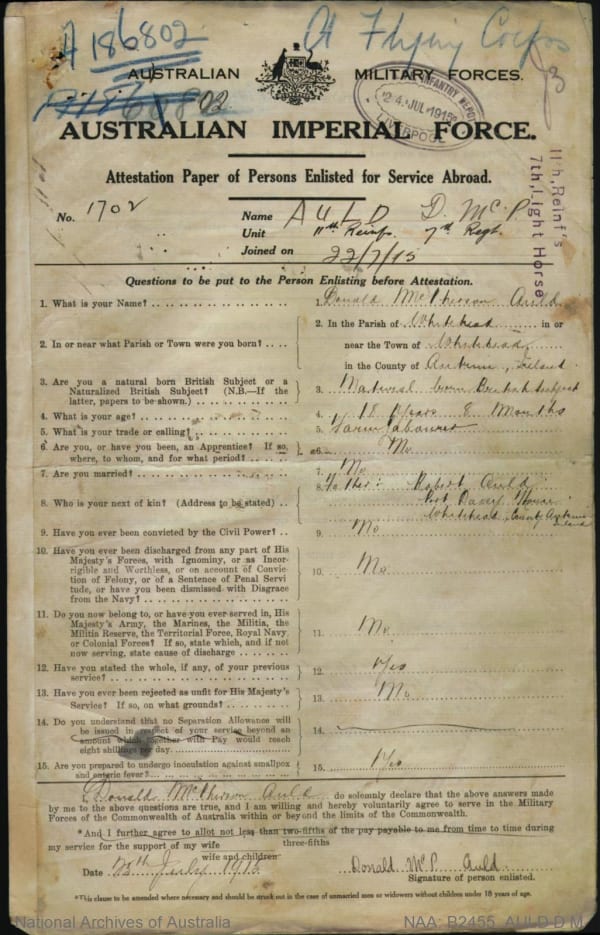 A 186802
At Flying Corps
AUSTRALIAN MILITARY FORCES.
02.
INFANTRY DEPOT
24 JUL 1915
LIVERPOOL
AUSTRALIAN IMPERIAL FORCE.
11th, Reinf's
7th, Light Horse
Attestation Paper of Persons Enlisted for Service Abroad.
No. 1702
Name AULD D. McP.
Unit 11th Reinfs. 7th Regt.
Joined on 22/7/15
Questions to be put to the Person Enlisting before Attestation.
1. What is your Name? .... 1. Donald McPherson Auld
2. In or near what Parish or Town were you born? .... 2. In the Parish of Whitehead in or
near the Town of Whitehead
in the County of Antrim, Ireland
3. Are you a natural born British Subject or a
Naturalized British Subject? (N.B.—If the
latter, papers to be shown) .... 3. Natural born British Subject
4. What is your age? .... 4. 18 years 8 months
5. What is your trade or calling? .... 5. Farm Labourer
6. Are you, or have you been, an Apprentice? If so,
where, to whom, and for what period? .... 6. No
7. Are you married? .... 7. No
8. Who is your next of kin? (Address to be stated) .. 8. Father: Robert Auld
Port Davey House
Whitehead, County Antrim
Ireland
9. Have you ever been convicted by the Civil Power? .. 9. No
10. Have you ever been discharged from any part of His
Majesty's Forces, with Ignominy, or as Incor-
rigible and Worthless, or on account of Convic-
tion of Felony, or of a Sentence of Penal Servi-
tude, or have you been dismissed with Disgrace
from the Navy? .... 10. No
11. Do you now belong to, or have you ever served in, His
Majesty's Army, the Marines, the Militia, the
Militia Reserve, the Territorial Force, Royal Navy
or Colonial Forces? If so, state which, and if not
now serving, state cause of discharge .... 11. No
12. Have you stated the whole, if any, of your previous
service? .... 12. Yes
13. Have you ever been rejected as unfit for His Majesty's
Service? If so, on what grounds? .... 13. No
14. Do you understand that no Separation Allowance will
be issued in respect of your service beyond an
amount which together with Pay would reach
eight shillings per day .... 14.
15. Are you prepared to undergo inoculation against smallpox
and enteric fever? .... 15. Yes
I, Donald McPherson Auld do solemnly declare that the above answers made
by me to the above questions are true, and I am willing and hereby voluntarily agree to serve in the Military
Forces of the Commonwealth of Australia within or beyond the limits of the Commonwealth.
*And I further agree to allot not less than two-fifths of the pay payable to me from time to time during
three-fifths
my service for the support of my wife
wife and children
Date 20th July 1915 Donald McP Auld
Signature of person enlisted.
*This clause to be amended where necessary and should be struck out in the case of unmarried men or widowers without children under 18 years of age.
National Archives of Australia NAA: B2455, AULD D M